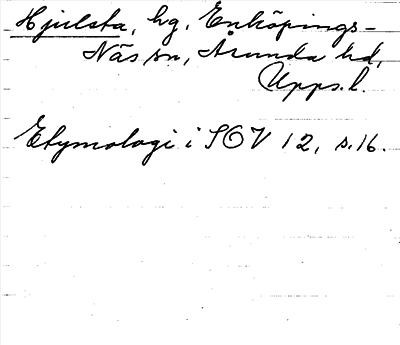 Hjulsta, hg, Enköpings-
Näs sn, Åsunda hd,
Upps. l.
Etymologi i SOV 12, s. 16.